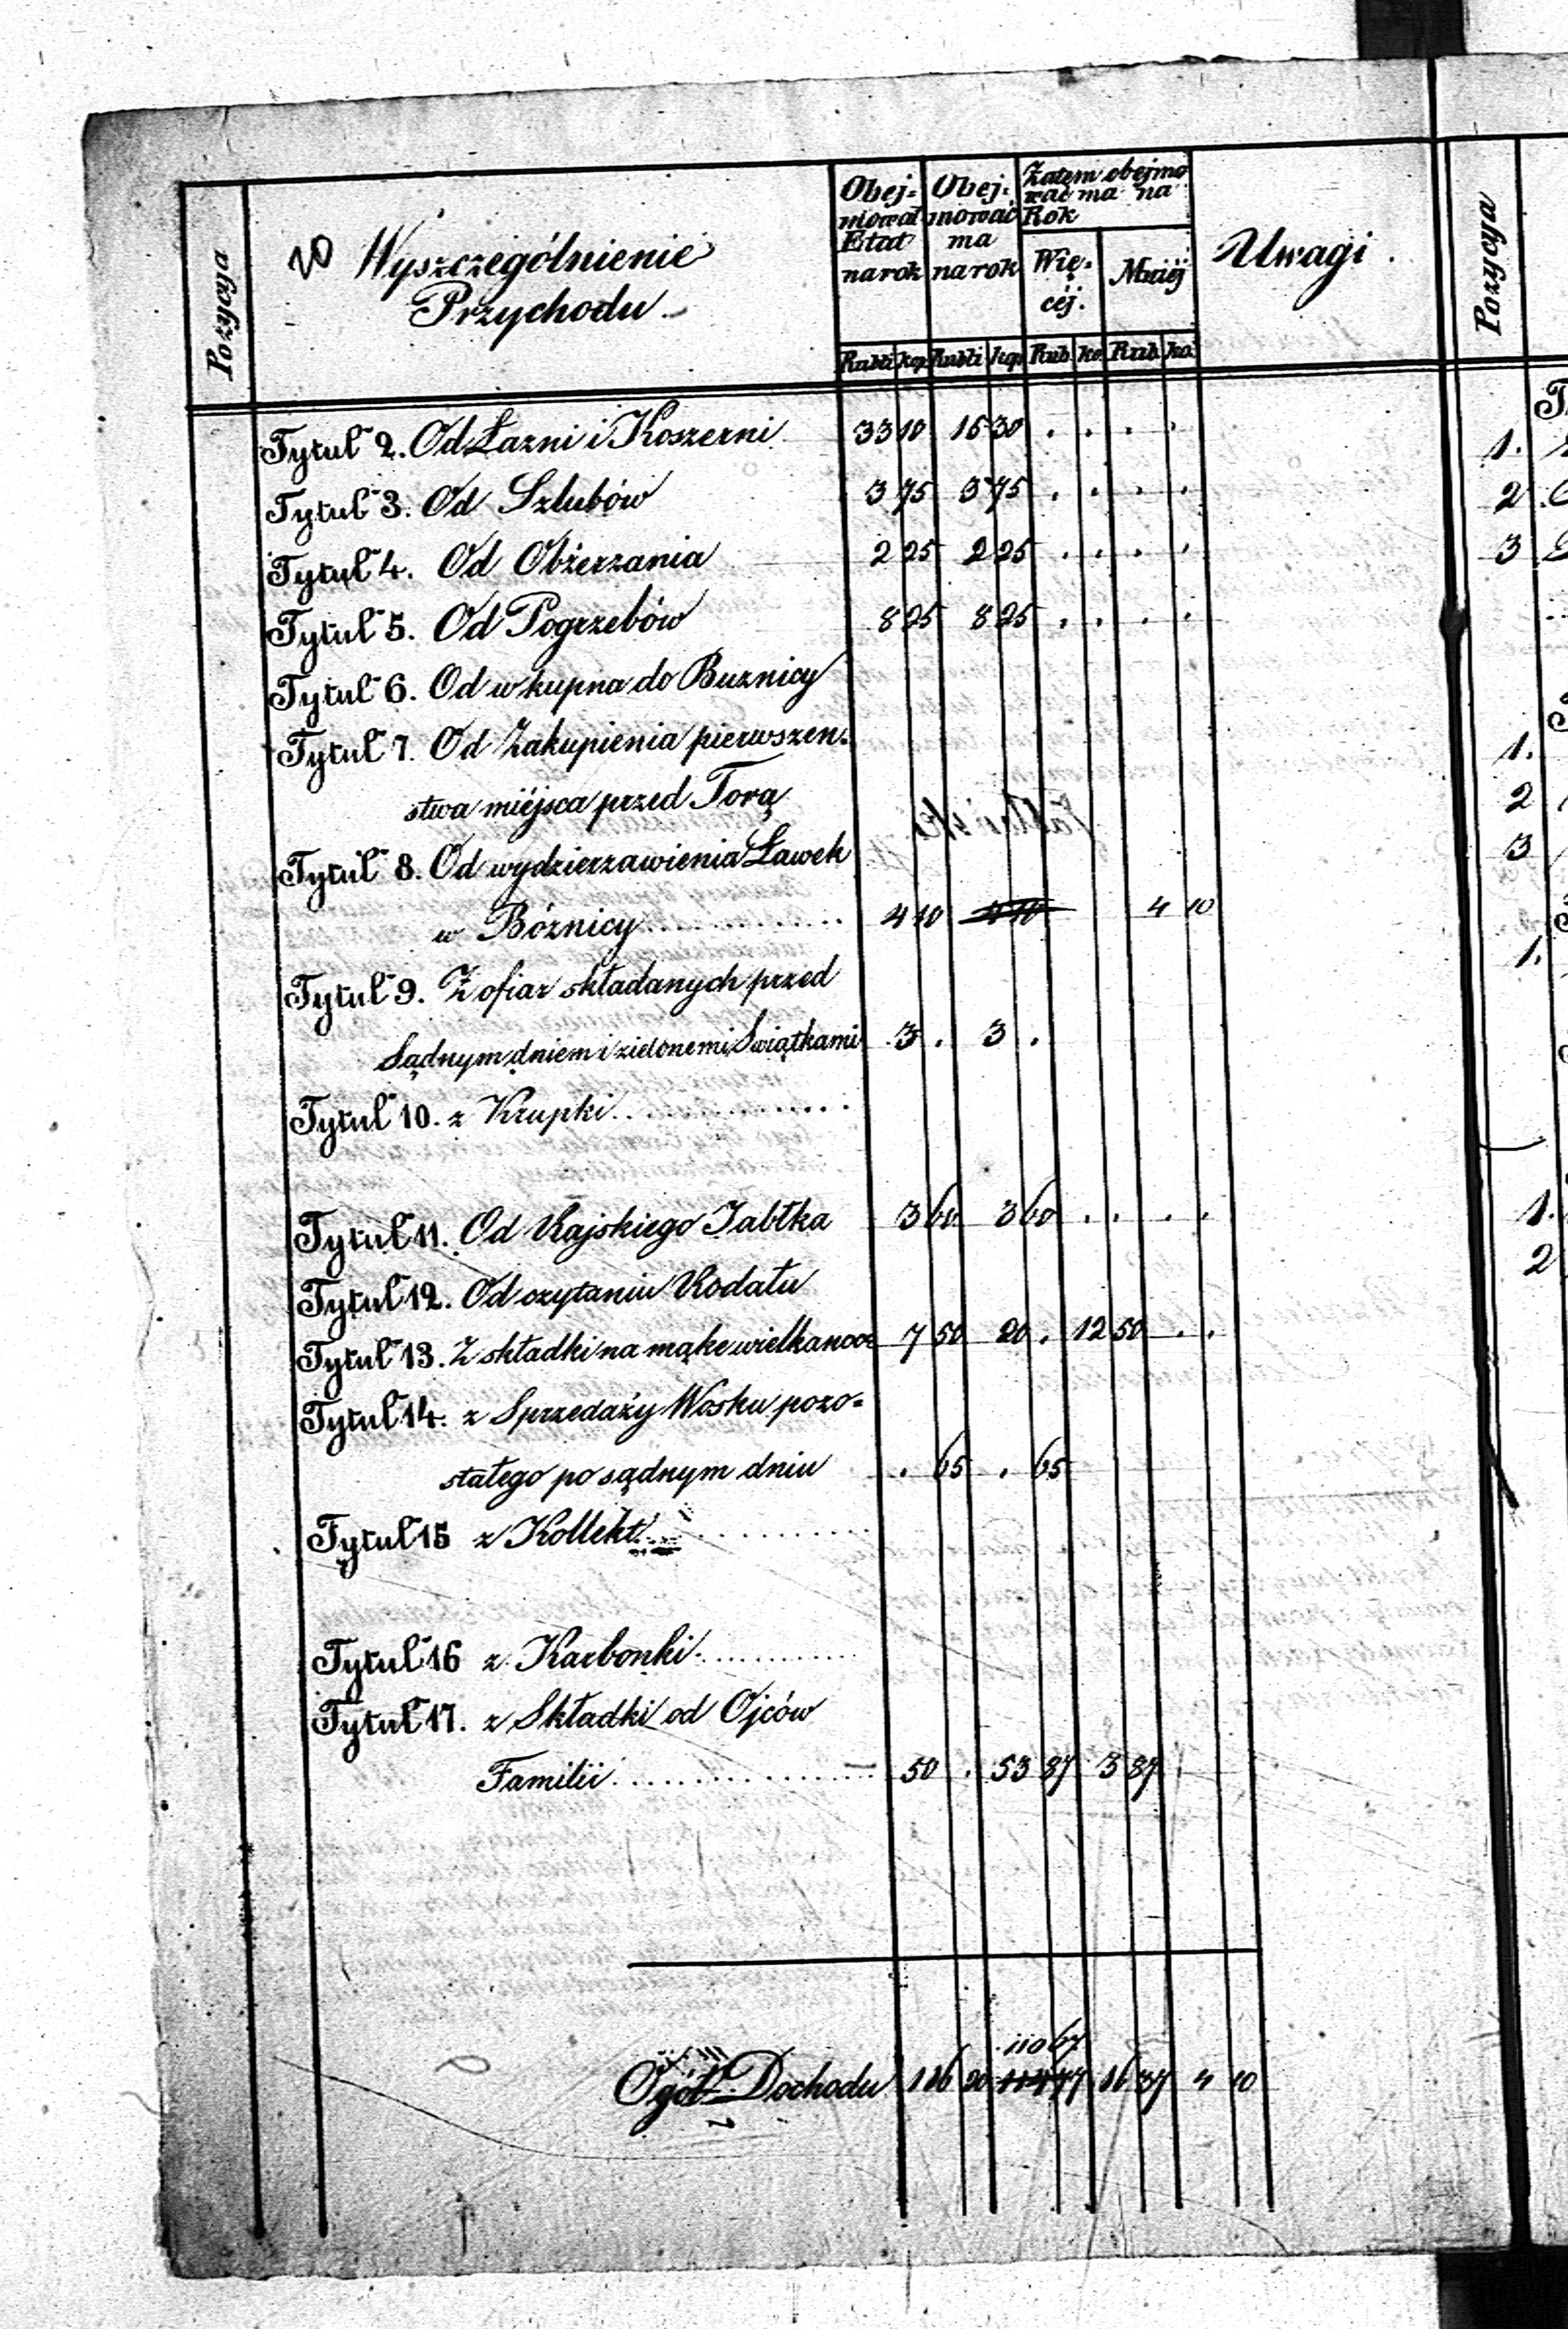 Pozycya
Wyszczególnienie
Przychodu
Obej-
mował
Etat
na rok
Obej-
mować
ma
na rok
Zatem obejmo
wać ma na
Rok
Wię-
céj.
Mniéj
Uwagi
Pozycya
Rubli kop Rubli kop Rub. ko. Rub. ko
Tytuł 2. Od Łazni i Koszerni 33 10 15 30 . . . .
Tytuł 3. Od Szlubów 3 75 3 75 . . . .
Tytuł 4. Od Obżerzania 2 25 2 25 . . . .
Tytuł 5. Od Pogrzebów 8 25 8 25 . . . .
Tytuł 6. Od wkupna do Buznicy
Tytuł 7. Od Zakupienia pierwszen-
stwa miéjsca przed Torą
Tytuł 8. Od wydzierzawienia Ławek
w Bóznicy 4 10 4 10 4 10
Tytuł 9. Z ofiar składanych przed
Sądnym dniem i zielonemi Swiątkami 3 . 3 .
Tytuł 10. z Krupki
Tytuł 11. Od Rajskiego Jabłka 3 60 3 60 . . . .
Tytuł 12. Od czytaniu Rodału
Tytuł 13. Z składki na mąke wielkanoc 7 50 20 . 12 50 . .
Tytuł 14. z Sprzedaży Wosku pozo-
stałego po sądnym dniu . 65 . 65
Tytuł 15 z Kollekt
Tytuł 16 z Karbonki
Tytuł 17. z Składki od Ojców
Familii 50 . 53 87 3 87
110 67
Ogół Dochodu 116 20 114 77 16 37 4 10
1.
2
3
1.
2
3
1.
1.
2